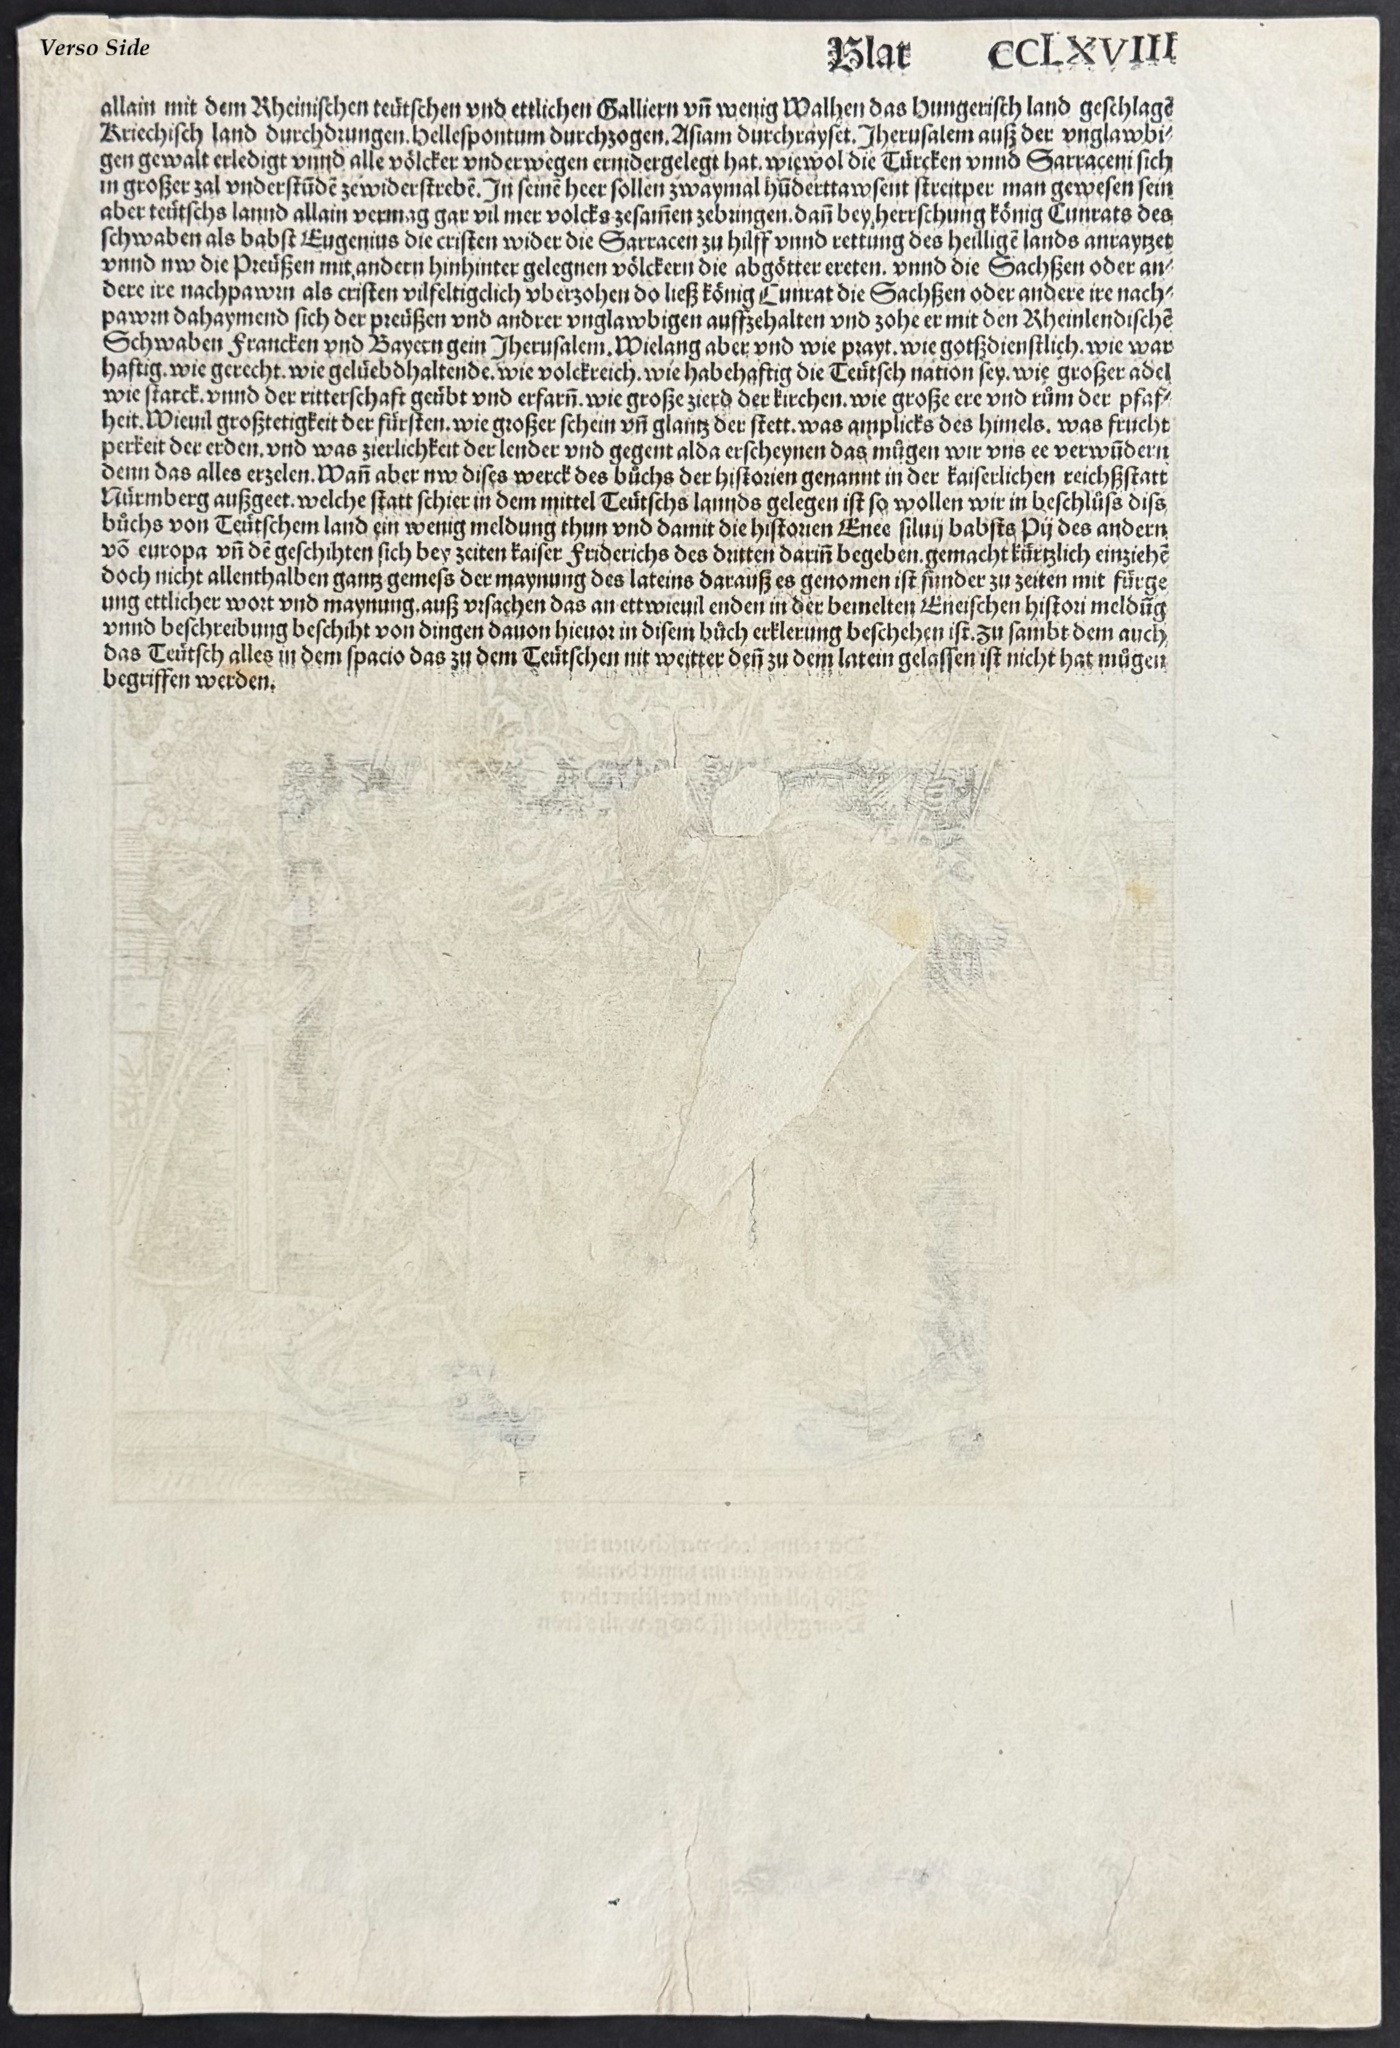 Verso Side
Blat CCLXVIII
allain mit dem Rheinischen teütschen vnd ettlichen Galliern vn̄ wenig Walhen das Hungerisch land geschlagē
Kriechisch land durchdrungen. Hellespontum durchzogen. Asiam durchrayset. Jherusalem auß der vnglawbi⸗
gen gewalt erledigt vnnd alle völcker vnderwegen ernidergelegt hat. wiewol die Türcken vnnd Sarraceni sich
in großer zal vnderstūdē zewiderstrebē. Jn seinē heer sollen zwaymal hūderttawsent streitper man gewesen sein
aber teütschs lannd allain vermag gar vil mer volcks zesam̄en zebringen. dan̄ bey herrschung könig Cunrats des
schwaben als babst Eugenius die cristen wider die Sarracen zu hilff vnnd rettung des heilligē lands anraytzet
vnnd nw die Preüßen mit andern hinhinter gelegnen völckern die abgötter ereten. vnnd die Sachßen oder an⸗
dere ire nachpawrn als cristen vilfeltigclich vberzohen do ließ könig Cunrat die Sachßen oder andere ire nach⸗
pawrn dahaymend sich der preüßen vnd andrer vnglawbigen auffzehalten vnd zohe er mit den Rheinlendischē
Schwaben Francken vnd Bayern gein Jherusalem. Wielang aber vnd wie prayt. wie gotßdienstlich. wie war
haftig. wie gerecht. wie gelüebdhaltende. wie volckreich. wie habehaftig die Teütsch nation sey. wie großer adel
wie starck. vnnd der ritterschaft geübt vnd erfarn̄. wie große zierd der kirchen. wie große ere vnd rům der pfaf⸗
heit. Wieuil großtetigkeit der fürsten. wie großer schein vn̄ glantz der stett. was anplicks des himels. was frucht
perkeit der erden. vnd was zierlichkeit der lender vnd gegent alda erscheynen das můgen wir vns ee verwūdern
denn das alles erzelen. Wan̄ aber nw dises werck des bůchs der historien genannt in der kaiserlichen reichßstatt
Nürmberg außgeet. welche statt schier in dem mittel Teütschs lannds gelegen ist so wollen wir in beschlůss diss
bůchs von Teütschem land ein wenig meldung thun vnd damit die historien Enee siluij babsts Pij des andern
vō europa vn̄ dē geschihten sich bey zeiten kaiser Friderichs des dritten darin̄ begeben. gemacht kürtzlich einziehē
doch nicht allenthalben gantz gemess der maynung des lateins darauß es genomen ist sunder zu zeiten mit fürge
ung ettlicher wort vnd maynung. auß vrsachen das an ettwieuil enden in der bemelten Eneischen histori meldūg
vnnd beschreibung beschiht von dingen dauon hieuor in disem bůch erklerung beschehen ist. Zu sambt dem auch
das Teütsch alles in dem spacio das zu dem Teütschen nit weitter den̄ zu dem latein gelassen ist nicht hat můgen
begriffen werden.